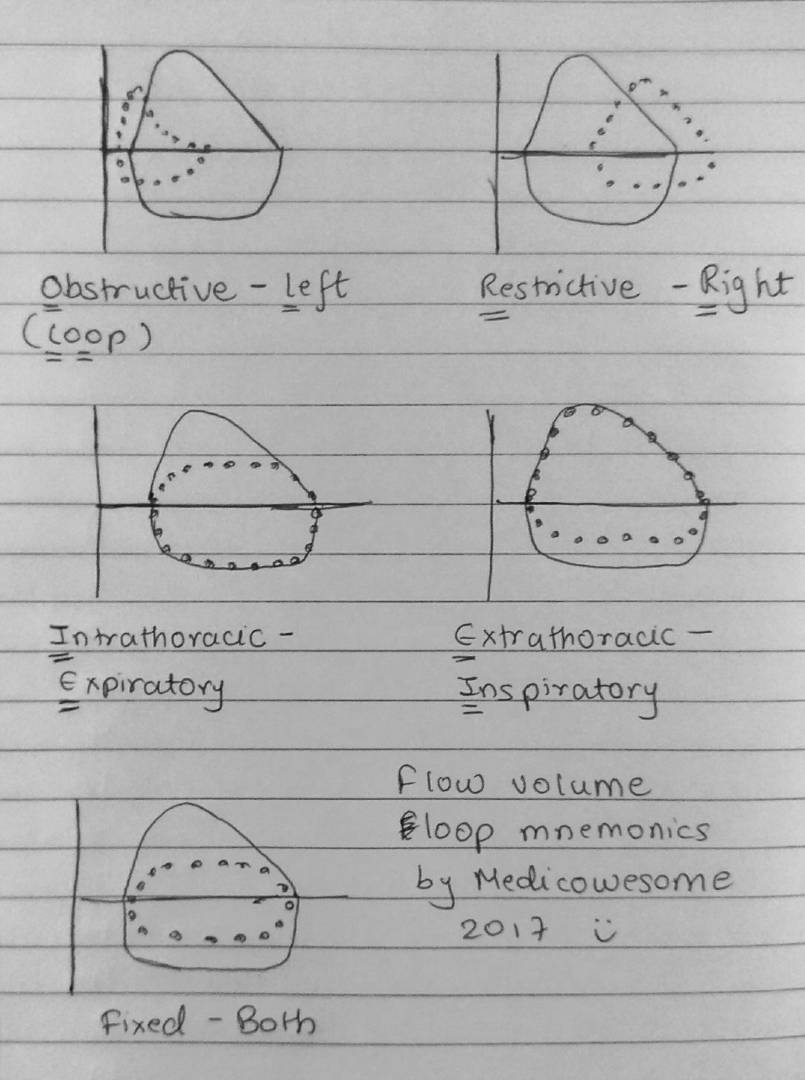 Obstructive - Left
(Loop)
Restrictive - Right
Intrathoracic -
Expiratory
Extrathoracic -
Inspiratory
Fixed - Both
Flow volume
loop mnemonics
by Medicowesome
2017 ü